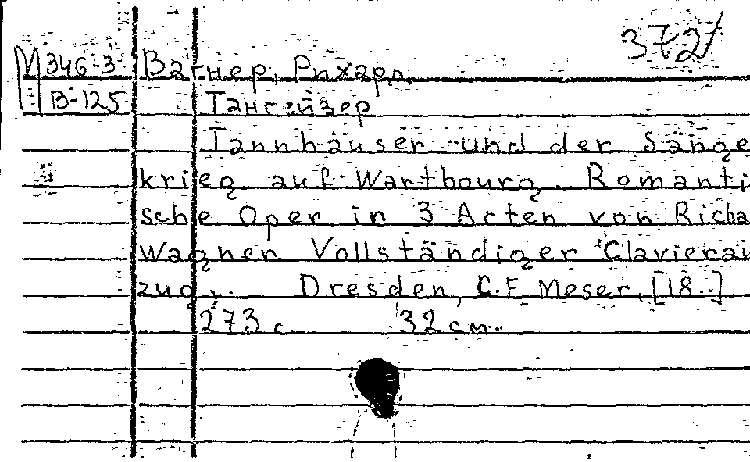 3721
М 346-3 Вагнер, Рихард.
В-125 Тангейзер
Tannhäuser und der Sänge
krieg auf Wartbourg. Romanti
sche Oper in 3 Acten von Richa
Wagner Vollständiger Clavierau
zug. Dresden, C.F. Meser, [18..]
273 с. 32 см.